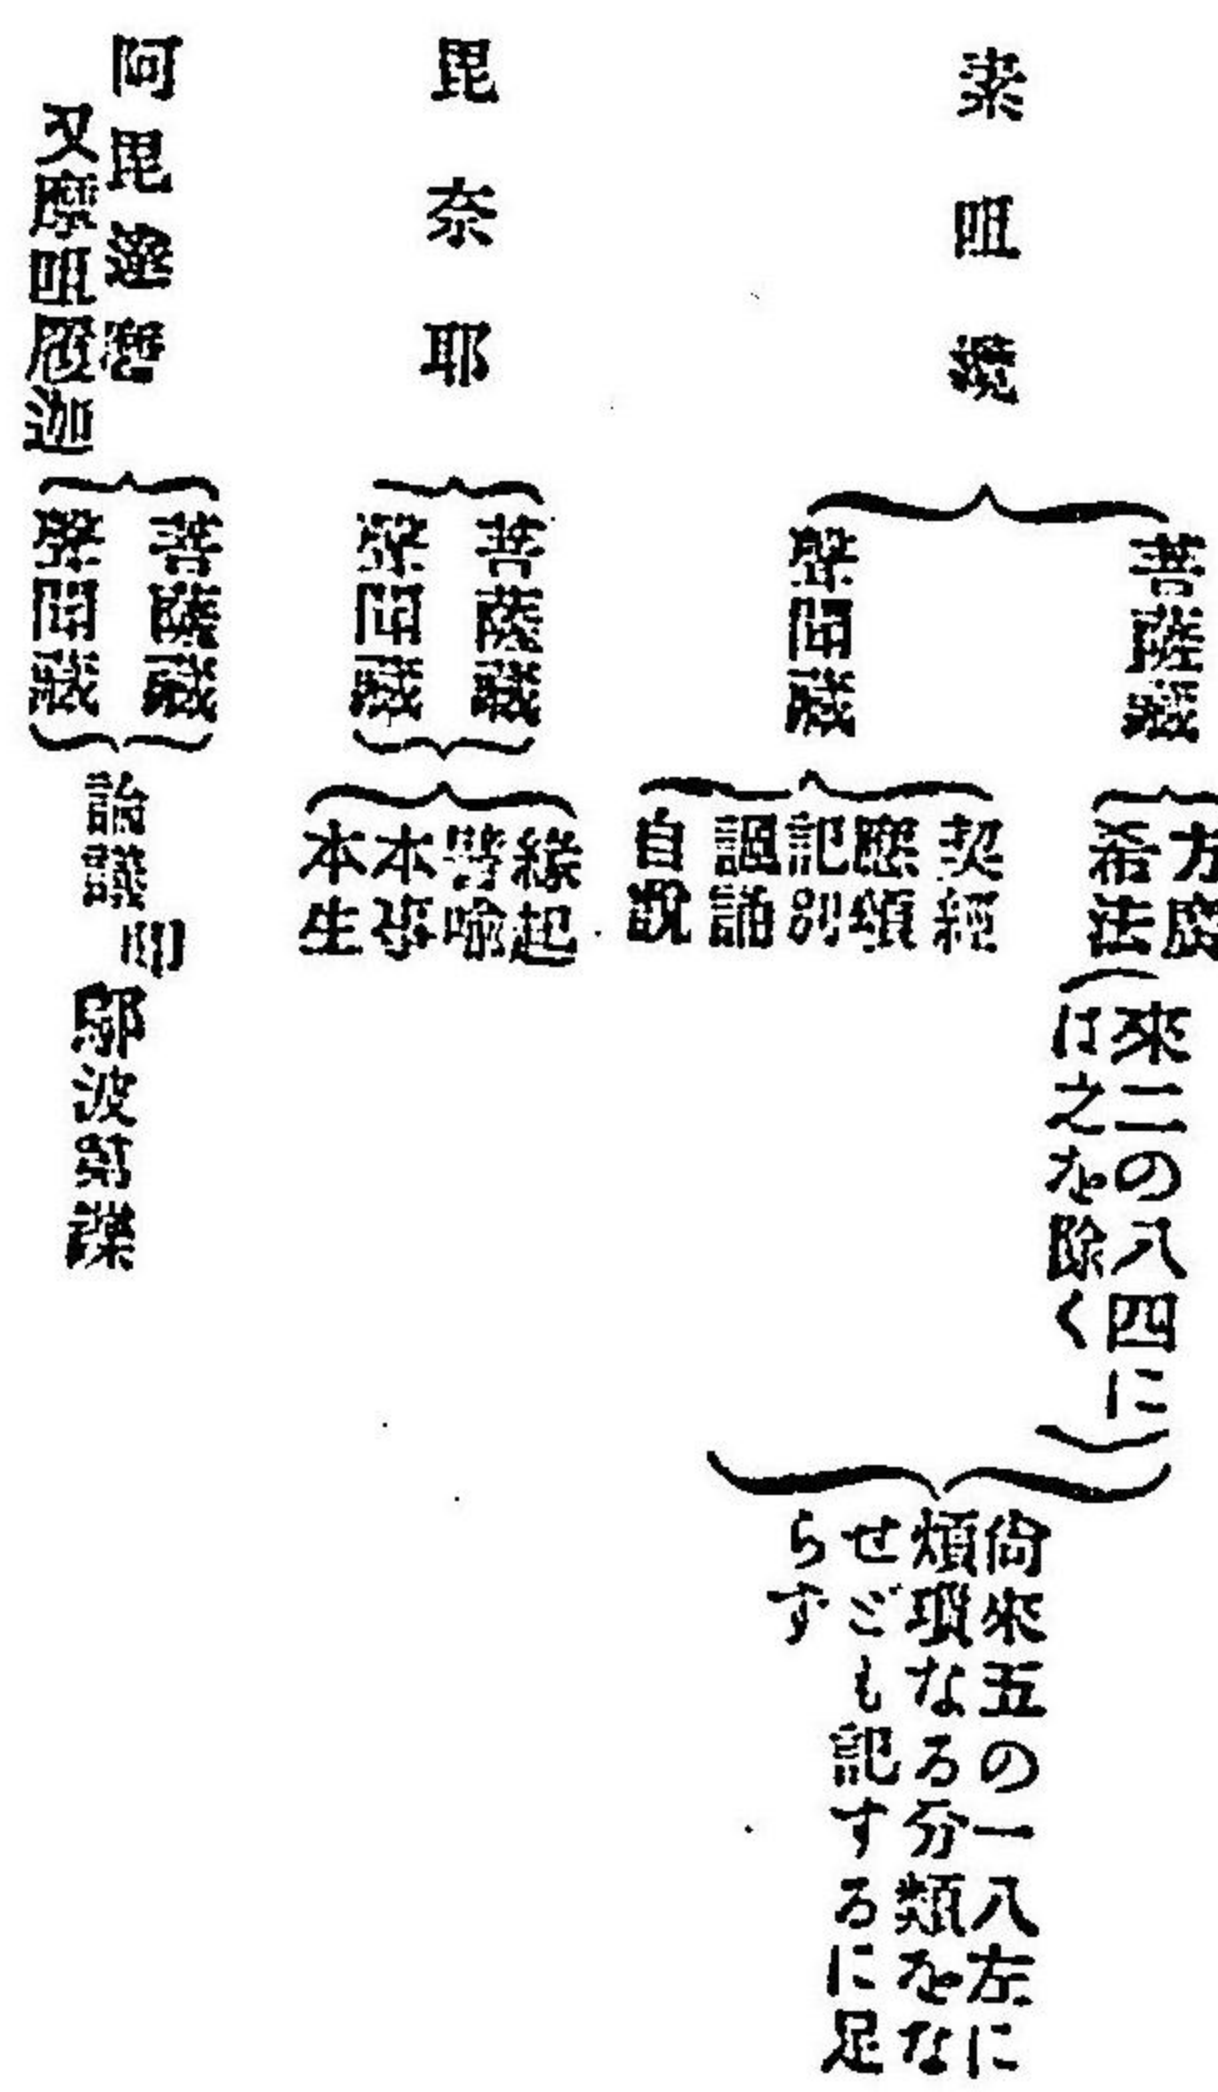 素呾纜
菩薩藏
方廣
希法
（來二の八四に
は之を除く）
聲聞藏
契經
應頌
記別
諷誦
自説
尙來五の一八左に
煩瑣なる分類をな
せども記するに足
らす
毘奈耶
菩薩藏
聲聞藏
緣起
譬喩
本事
本生
阿毘達磨
又摩呾履迦
菩薩藏
聲聞藏
論議
即
鄔波弟鑠